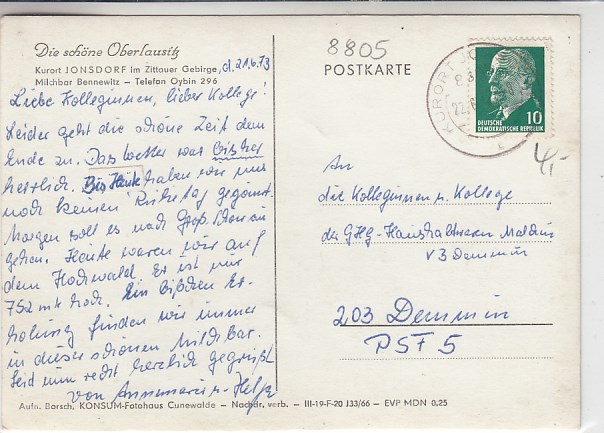 Die schöne Oberlausitz
Kurort JONSDORF im Zittauer Gebirge, d. 21.6.73
Milchbar Bennewitz — Telefon Oybin 296
Liebe Kolleginnen, lieber Kollege!
Leider geht die schöne Zeit dem
Ende zu. Das Wetter war bisher
herrlich. Bis Heute haben wir uns
noch keinen Ruhetag gegönnt.
Morgen soll es nach Groß
gehen. Heute waren wir auf
dem Hochwald. Er ist nur
752 m hoch. Ein bißchen Er-
holung finden wir immer
in dieser schönen Milchbar.
Seid nun recht herzlich gegrüßt
von Annemarie u. Helga
Aufn. Borsch, KONSUM-Fotohaus Cunewalde — Nachdr. verb. — III-19-F-20 J33/66 — EVP MDN 0,25
8805
POSTKARTE
KURORT JO
22.6
c
10
DEUTSCHE
DEMOKRATISCHE REPUBLIK
4,-
An
die Kolleginnen u. Kollege
der GHG-Haushaltwaren
V3 Demmin
203 Demmin
PSF 5